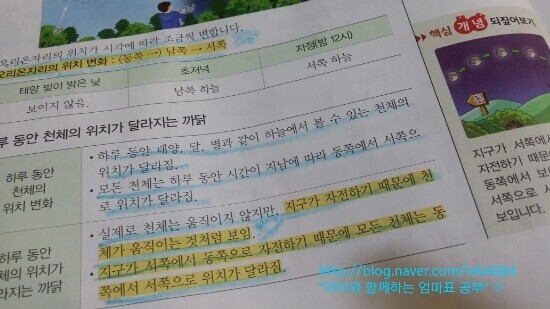 오리온자리의 위치가 시각에 따라 조금씩 변합니다.
오리온자리의 위치 변화 : (동쪽 →) 남쪽 → 서쪽
태양 빛이 밝은 낮
초저녁
자정(밤 12시)
보이지 않음.
남쪽 하늘
서쪽 하늘
하루 동안 천체의 위치가 달라지는 까닭
하루 동안
천체의
위치 변화
• 하루 동안 태양, 달, 별과 같이 하늘에서 볼 수 있는 천체의
위치가 달라짐.
• 모든 천체는 하루 동안 시간이 지남에 따라 동쪽에서 서쪽으
로 위치가 달라짐.
하루 동안
천체의 위치가
달라지는 까닭
• 실제로 천체는 움직이지 않지만, 지구가 자전하기 때문에 천
체가 움직이는 것처럼 보임.
• 지구가 서쪽에서 동쪽으로 자전하기 때문에 모든 천체는 동
쪽에서 서쪽으로 위치가 달라짐.
핵심 개념 되짚어보기
지구가 서쪽에서
자전하기 때문에
동쪽에서 보
서쪽으로
보입니다.
http://blog.naver.com/
함께하는 엄마표 공부